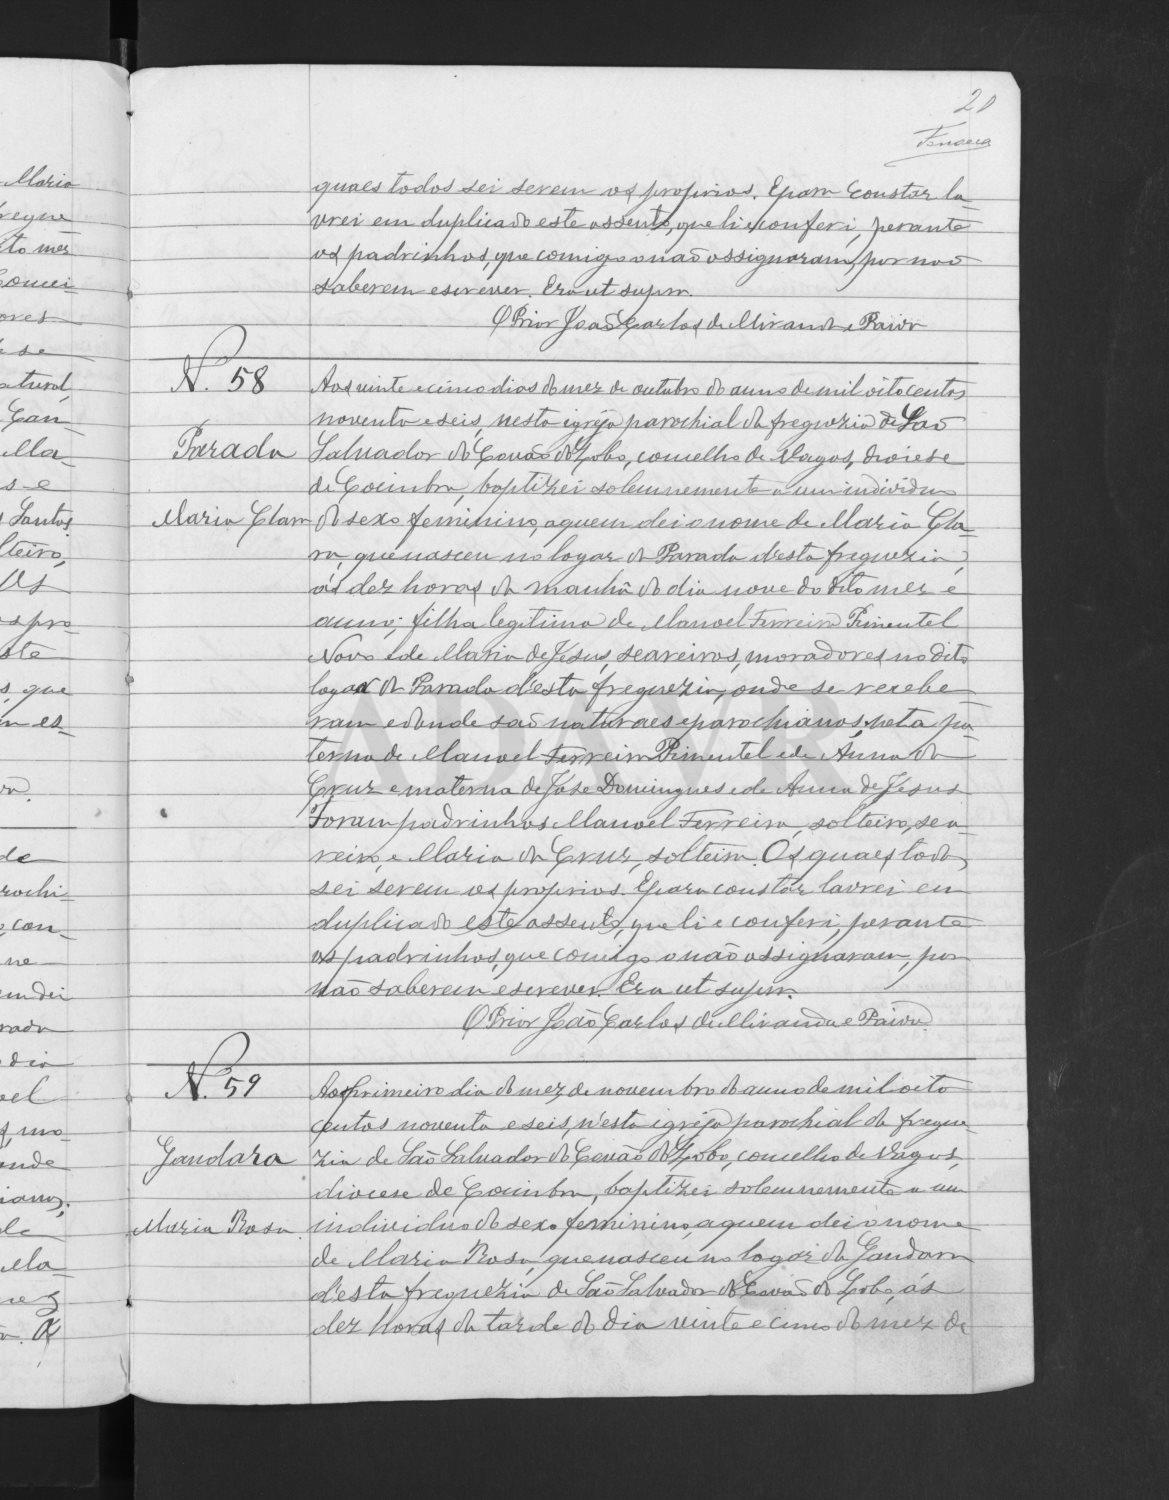 20
Fonseca
quaes todos sei serem os proprios. E para constar la-
vrei em duplicado este assento, que li e conferi, perante
os padrinhos, que comigo o não assignaram, por não
saberem escrever. Era ut supra.
O Prior João Carlos de Miranda e Paiva
N. 58
Parada
Maria Clara
Aos vinte e cinco dias do mez de outubro do anno de mil oitocentos
noventa e seis, nesta igreja parochial da freguezia de São
Salvador do Covão do Lobo, concelho de Vagos, diocese
de Coimbra, baptizei solemnemente a um individuo
do sexo feminino, a quem dei o nome de Maria Cla-
ra, que nasceu no logar da Parada d'esta freguezia,
ás dez horas da manhã do dia nove do dito mez e
anno; filha legitima de Manoel Ferreira Pimentel
Novo e de Maria de Jesus, seareiros, moradores no dito
logar da Parada d'esta freguezia, onde se recebe-
ram e donde são naturaes e parochianos, neta pa-
terna de Manoel Ferreira Pimentel e de Anna da
Cruz e materna de José Domingues e de Anna de Jesus.
Foram padrinhos Manoel Ferreira, solteiro, sea-
reiro, e Maria da Cruz, solteira. Os quaes todos
sei serem os proprios. E para constar lavrei em
duplicado este assento, que li e conferi, perante
os padrinhos, que comigo o não assignaram, por
não saberem escrever. Era ut supra.
O Prior João Carlos de Miranda e Paiva.
N. 59
Gandara
Maria Rosa.
Ao primeiro dia do mez de novembro do anno de mil oito
centos noventa e seis, n'esta igreja parochial da fregue-
zia de São Salvador do Covão do Lobo, concelho de Vagos,
diocese de Coimbra, baptizei solemnemente a um
individuo do sexo feminino, a quem dei o nome
de Maria Rosa, que nasceu no logar da Gandara
d'esta freguezia de São Salvador do Covão do Lobo, ás
dez horas da tarde do dia vinte e cinco do mez de
ADAVR